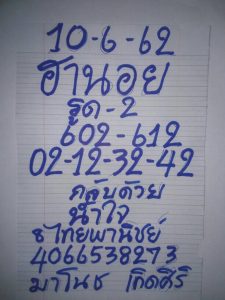 10-6-62
ฮานอย
รูด-2
602-612
02-12-32-42
กลับด้วย
น้ำใจ
ธไทยพานิชย์
4066538273
มาโนช เกิดศิริ